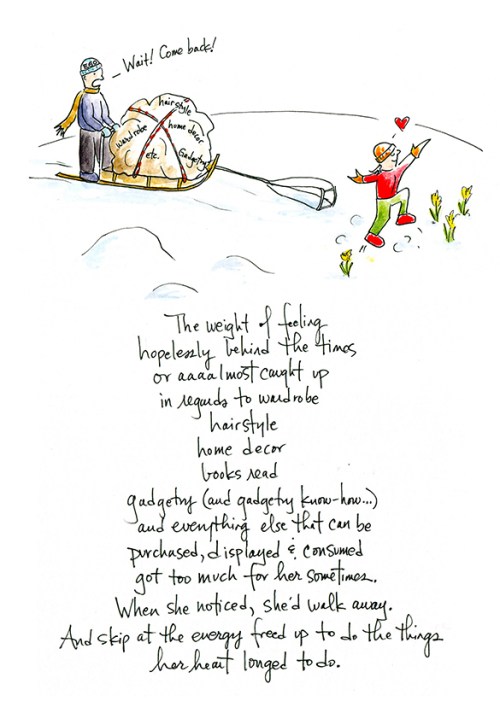 Wait! Come back!
hairstyle
home decor
wardrobe
etc.
Gadgetry
The weight of feeling
hopelessly behind the times
or aaaalmost caught up
in regards to wardrobe
hairstyle
home decor
books read
gadgetry (and gadgetry know-how...)
and everything else that can be
purchased, displayed & consumed
got too much for her sometimes.
When she noticed, she'd walk away.
And skip at the energy freed up to do the things
her heart longed to do.